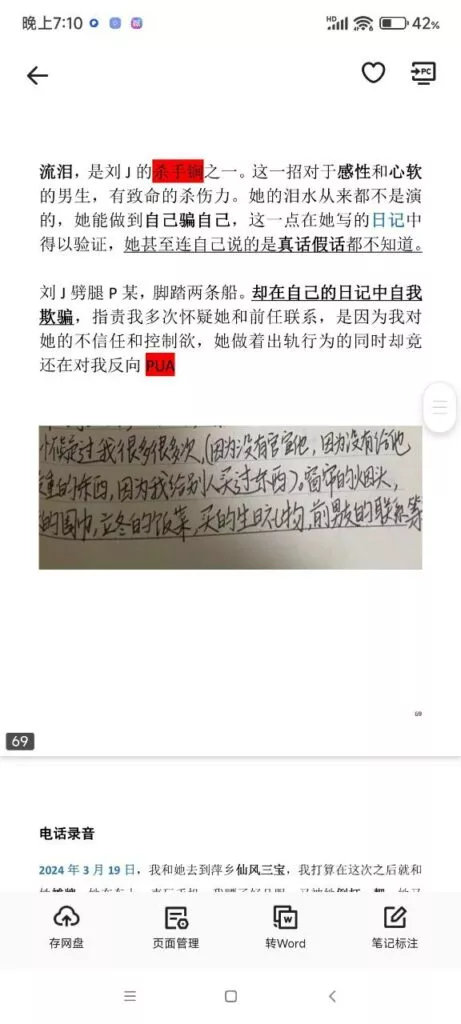 晚上7:10
HD
42%
PC
流泪，是刘 J 的杀手锏之一。这一招对于感性和心软
的男生，有致命的杀伤力。她的泪水从来都不是演
的，她能做到自己骗自己，这一点在她写的日记中
得以验证，她甚至连自己说的是真话假话都不知道。
刘 J 劈腿 P 某，脚踏两条船。却在自己的日记中自我
欺骗，指责我多次怀疑她和前任联系，是因为我对
她的不信任和控制欲，她做着出轨行为的同时却竟
还在对我反向 PUA
怀疑过我很多很多次，(因为没有官宣他，因为没有给他
重的东西，因为我给别人买过东西)。窗帘的烟头，
的围巾，立冬的饭菜，买的生日礼物，前男友的联系
69
69
电话录音
2024 年 3 月 19 日，我和她去到萍乡仙风三宝，我打算在这次之后就和
存网盘
页面管理
转Word
笔记标注